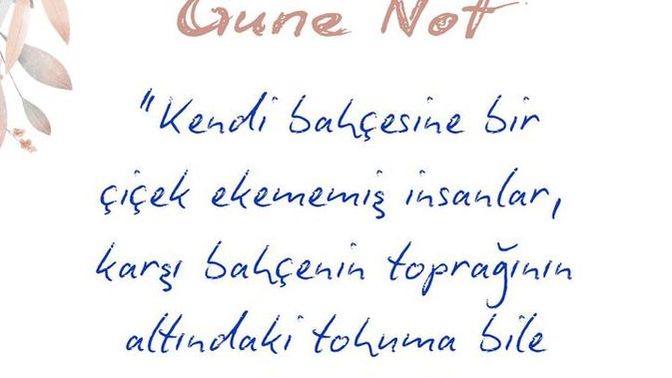 Güne Not
"Kendi bahçesine bir
çiçek ekememiş insanlar,
karşı bahçenin toprağının
altındaki tohuma bile